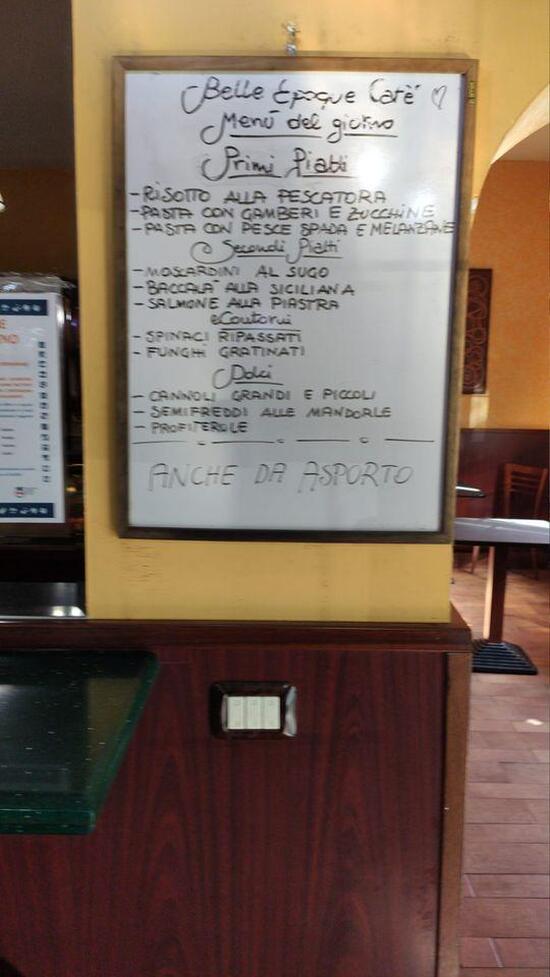 Belle Epoque Cafè
Menù del giorno
Primi Piatti
- RISOTTO ALLA PESCATORA
- PASTA CON GAMBERI E ZUCCHINE
- PASTA CON PESCE SPADA E MELANZANE
Secondi Piatti
- MOSCARDINI AL SUGO
- BACCALA' ALLA SICILIANA
- SALMONE ALLA PIASTRA
e Contorni
- SPINACI RIPASSATI
- FUNGHI GRATINATI
Dolci
- CANNOLI GRANDI E PICCOLI
- SEMIFREDDI ALLE MANDORLE
- PROFITEROLE
ANCHE DA ASPORTO